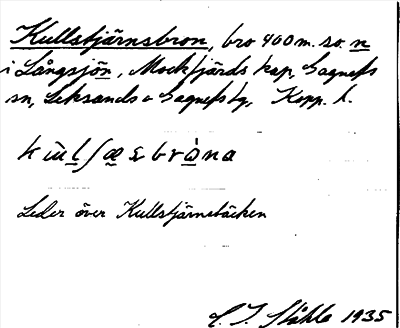 Kullstjärnsbron, bro 400 m. so. n
i Långsjön, Mockfjärds kap, Gagnefs
sn, Leksands o Gagnefs tg, Kopp. l.
Leder över Kullstjärnsbäcken
C. I. Ståhle 1935